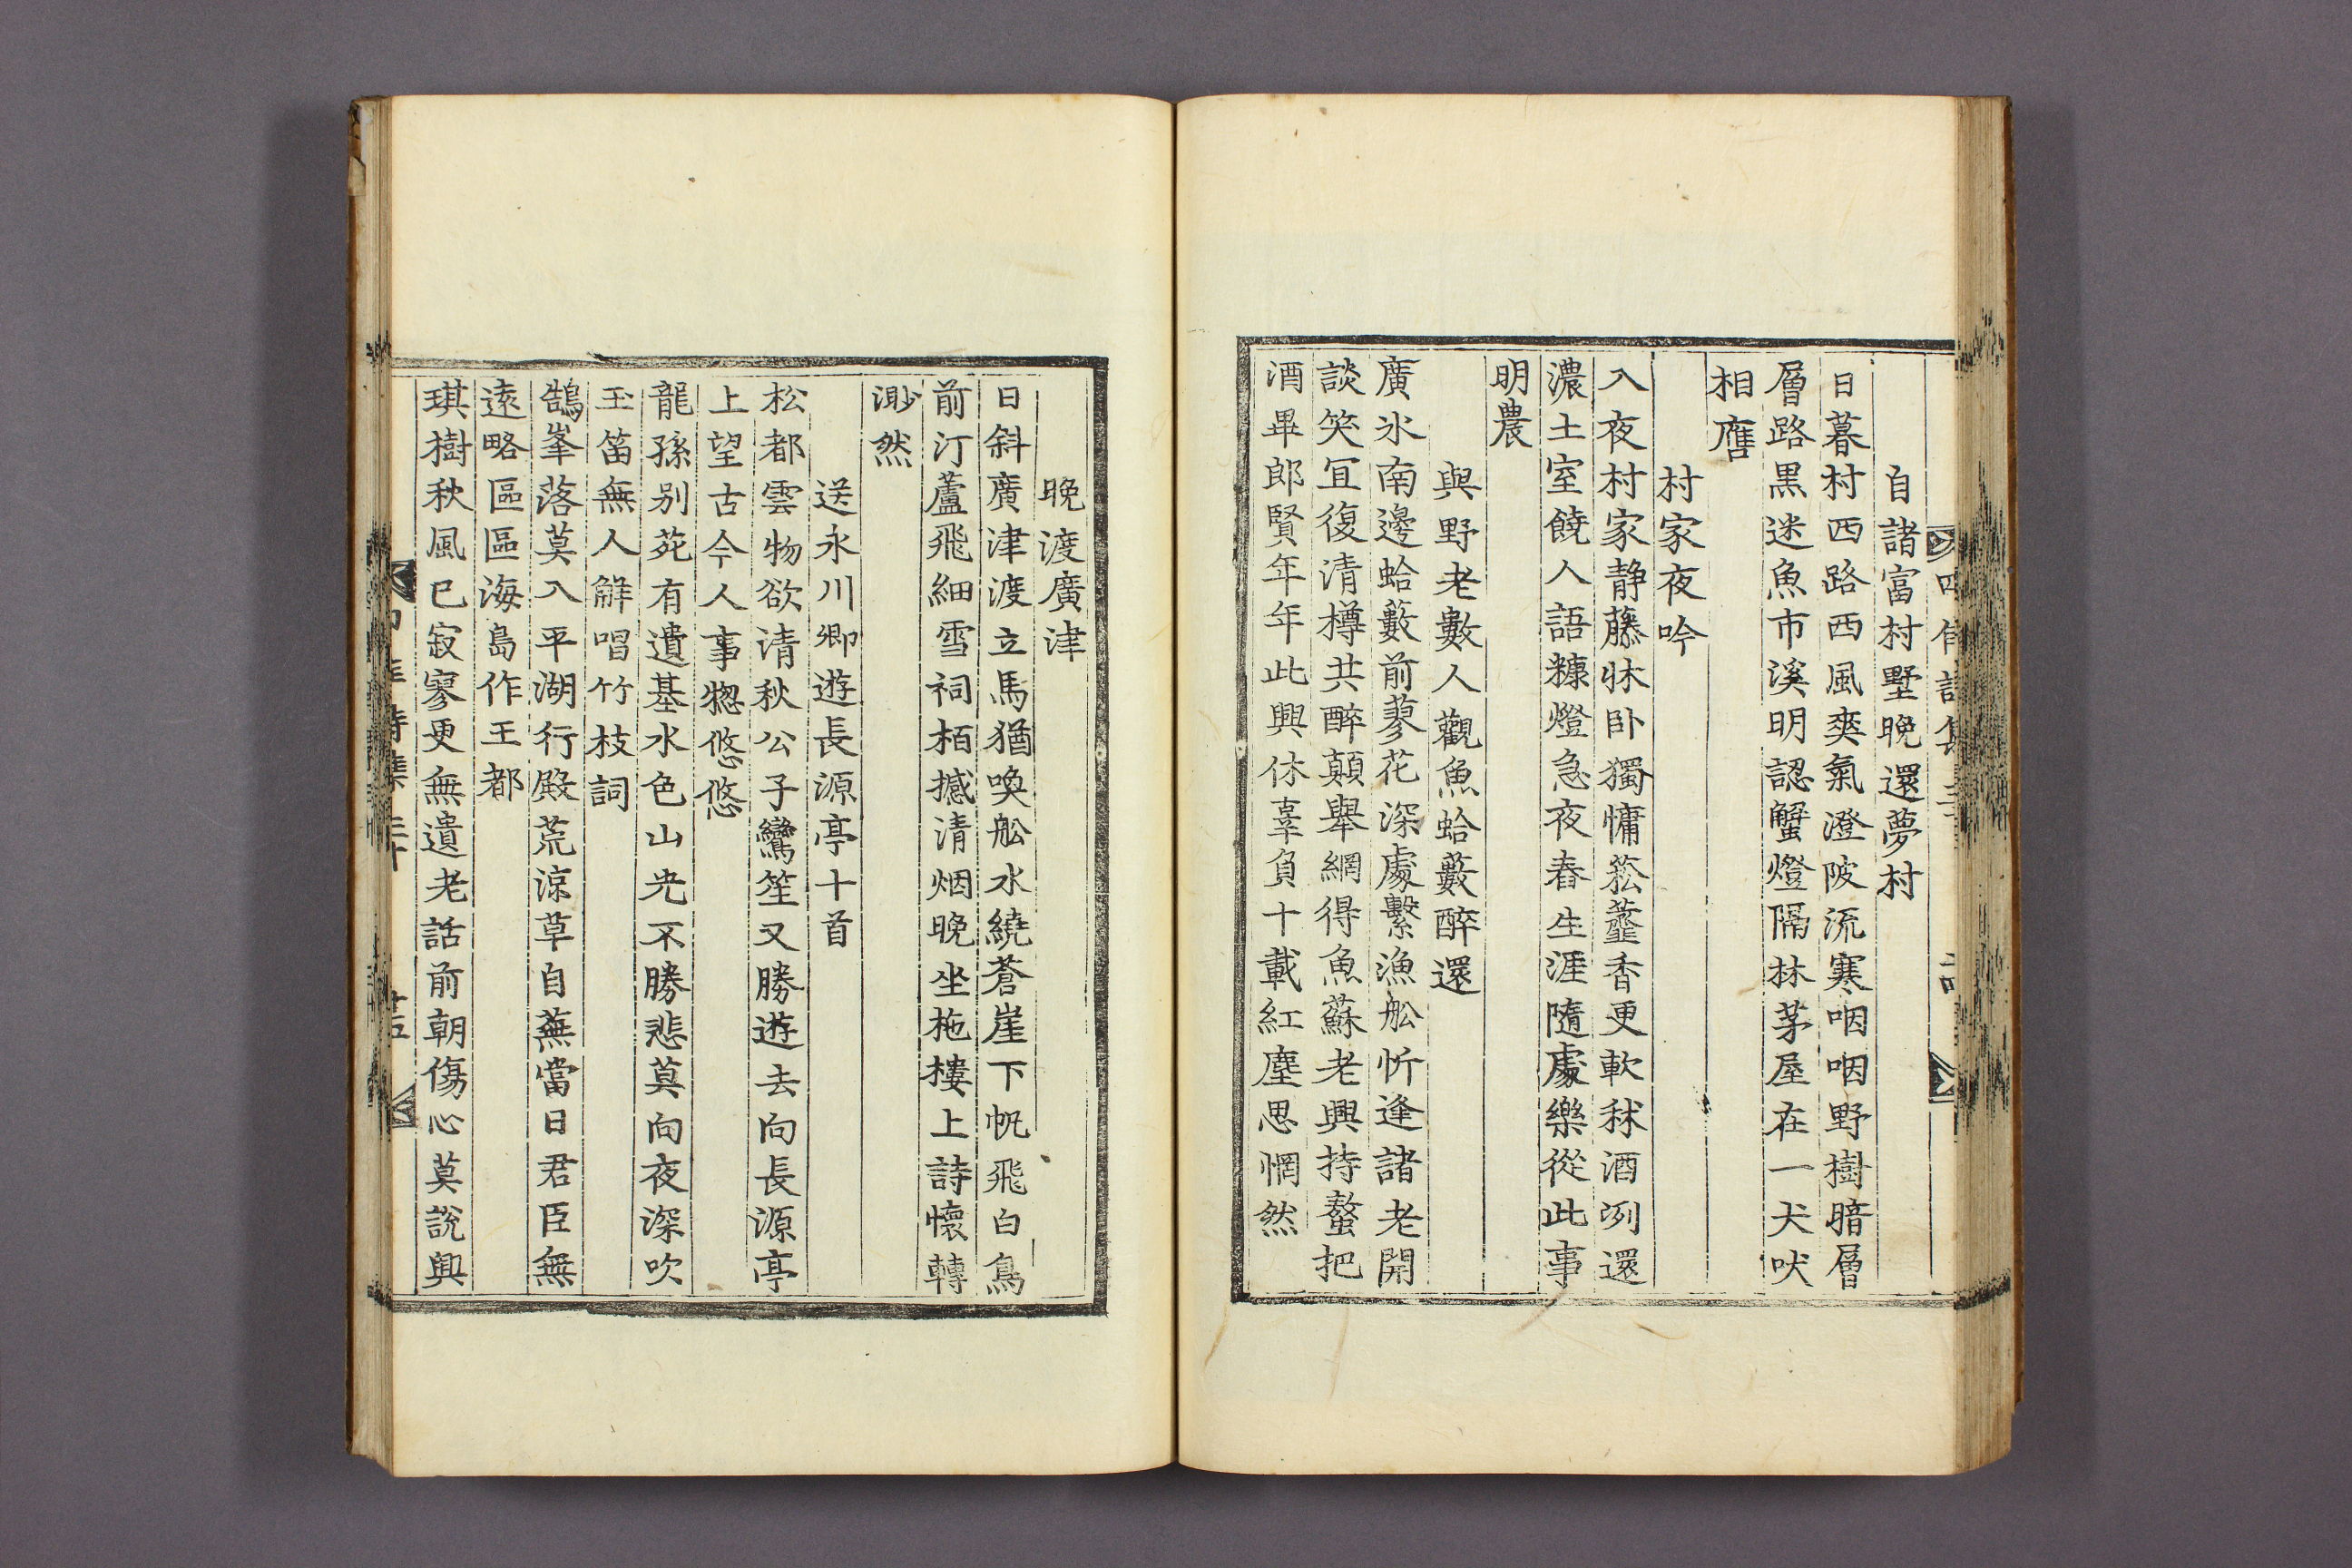 自諸富村墅晚還夢村
日暮村西路西風爽氣澄陂流寒咽咽野樹暗層
層路黒迷魚市溪明認蟹燈隔林茅屋在一犬吠
相譍
村家夜吟
入夜村家静藤牀卧獨慵菘虀香更軟秫酒冽還
濃土室饒人語糠燈急夜舂生涯隨處樂從此事
明農
與野老數人觀魚蛤藪醉還
廣氷南邊蛤藪前蓼花深處繫漁舩忻逢諸老開
談笑冝復清樽共醉顛舉網得魚蘇老興持螯把
酒畢郎賢年年此興休辜負十載紅塵思惘然
晚渡廣津
日斜廣津渡立馬猶喚舩水繞蒼崖下帆飛白鳥
前汀蘆飛細雪祠栢撼清烟晚坐柂樓上詩懷轉
渺然
送永川卿遊長源亭十首
松都雲物欲清秋公子鸞笙又勝遊去向長源亭
上望古今人事惣悠悠
龍孫别苑有遺基水色山光不勝悲莫向夜深吹
玉笛無人解唱竹枝詞
鵠峯落莫入平湖行殿荒涼草自蕪當日君臣無
遠略區區海島作王都
琪樹秋風已寂寥更無遺老話前朝傷心莫說興